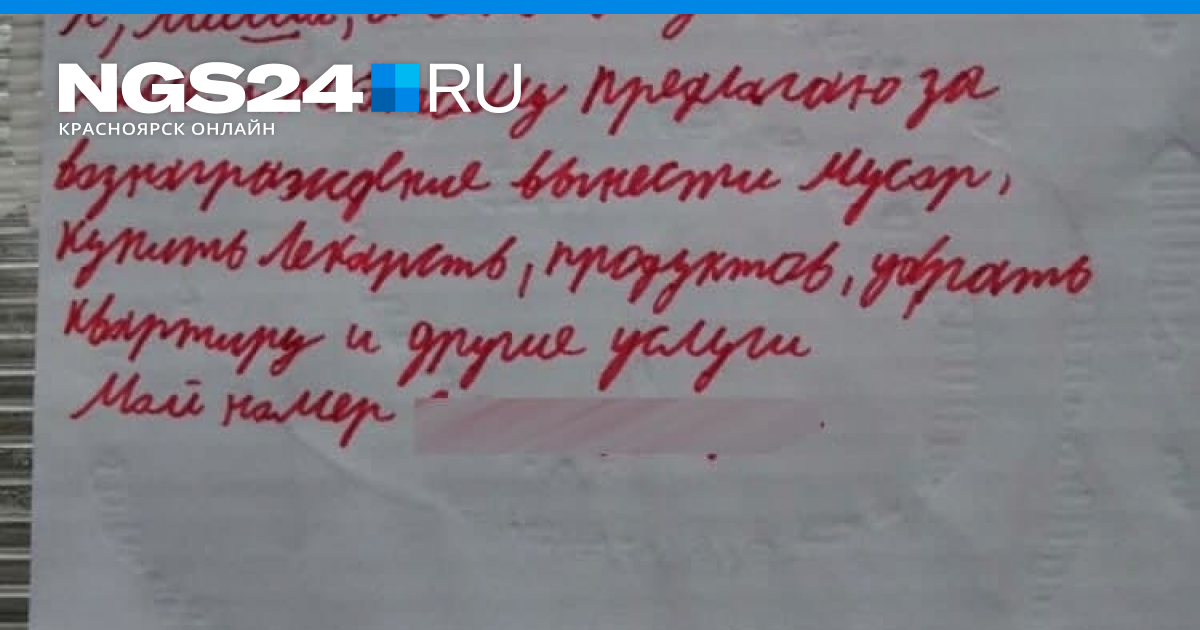 NGS24 RU
КРАСНОЯРСК ОНЛАЙН
предлагаю за
вознаграждение вынести мусор,
купить лекарств, продуктов, убрать
квартиру и другие услуги
Мой номер